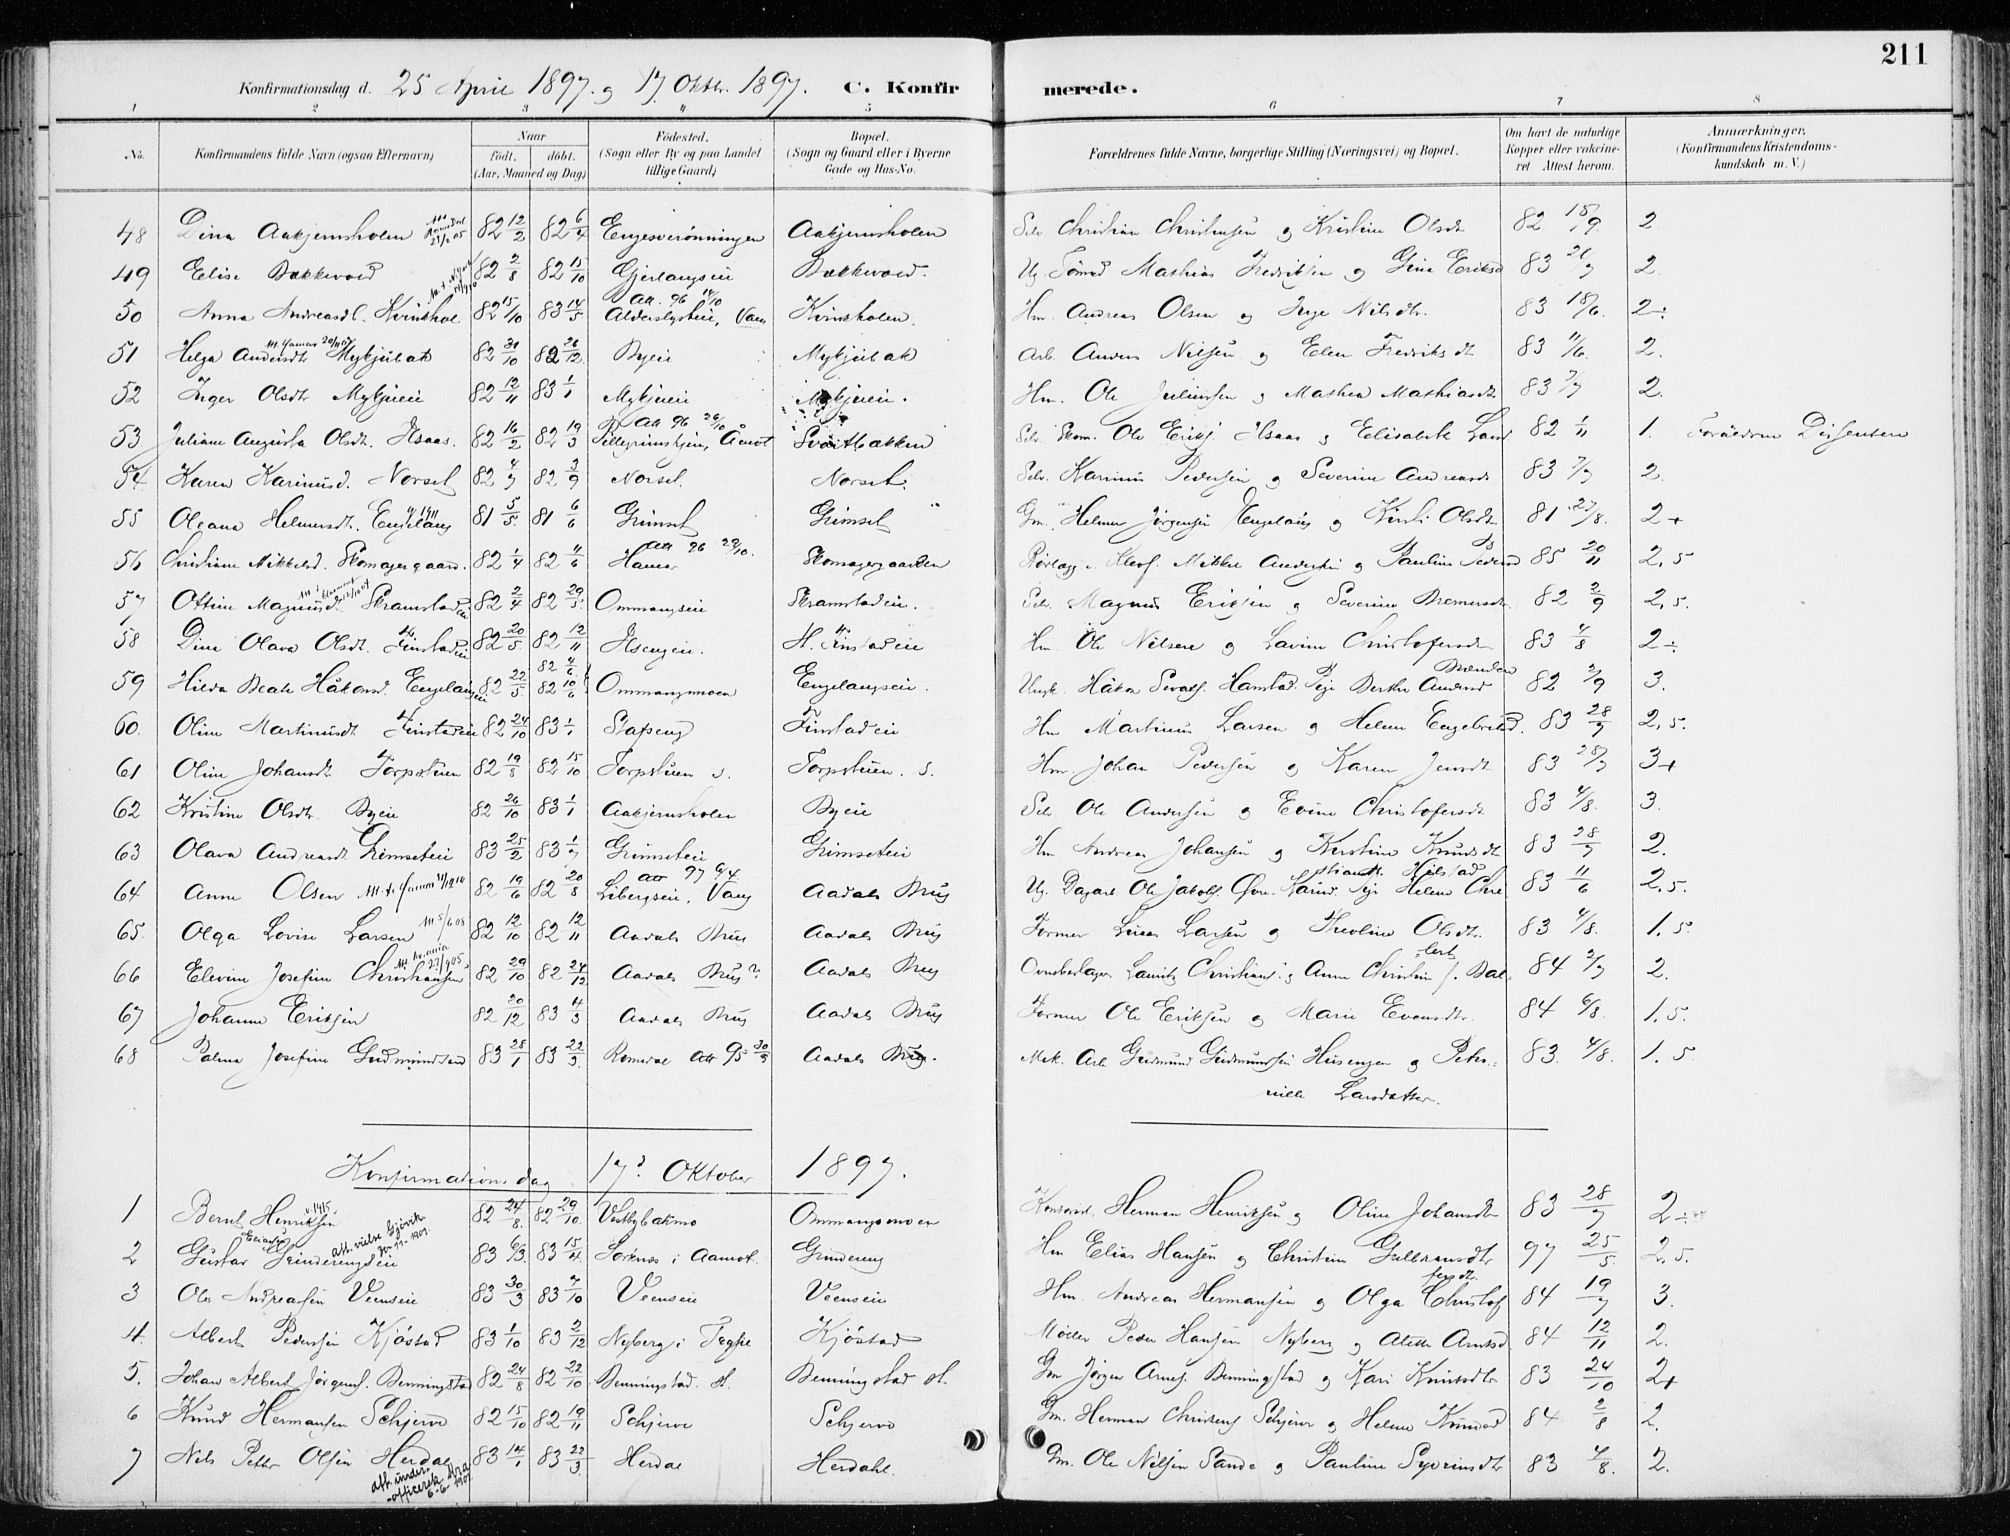 211
Konfirmationsdag d. 25 April 1897. og 17. Oktbr. 1897. C. Konfirmerede.
1 2 3 4 5 6 7 8
No. Konfirmandens fulde Navn (ogsaa Efternavn) Naar født. døbt. (Aar, Maaned og Dag) Fødested. (Sogn eller By og paa Landet tillige Gaard) Bopæl. (Sogn og Gaard eller i Byerne Gade og Hus-No. Forældrenes fulde Navne, borgerlige Stilling (Næringsvei) og Bopæl. Om havt de naturlige Kopper eller vakcineret Attest herom. Anmærkninger. (Konfirmandens Kristendomskundskab m. V.)
48 Dina Aakjernsholen 82 12/2 82 6/4 Engesverønningen Aakjernsholen Selv Christian Christensen og Kristine Olsdt 82 15/9 2
49 Elise Bækkevold 82 2/8 82 15/10 Gjerlaugseie Bækkevold. Mathias Fredriksen og Gina Eriksd 83 2.
50 Anna Andreasd. Kvinshol 82 15/10 83 14/5 Att. 96 14/10 Alderslysteie, Vang Kvinsholen. Hm. Andreas Olsen og Inge Nilsdtr. 83 18/6. 2÷
51 Helga Andersdtr Mykjulbak 82 82 26/12 Byeie Mykjulbak Arb. Anders Nilsen og Elen Fredriksdt 83 11/6. 2.
52 Inger Olsdtr Mykjueie 82 12/11 83 1/1 Mykjueie Mykjueie. Hm. Ole Juliussen og Mathea Mathiasdt 83 7/7 2.
53. Juliane Augusta Olsdt. Ilsaas. 82 16/2 82 19/3 Att 96 26/10 Aamot Svartbækken Selv. Skom. Ole Eriks. Ilsaas og Elisabeth Lars 82 1/11 1. Forældrene Dissentere
54 Karen Karinusd. Norset 82 4/7 82 3/9 Norset. Norset. Selv. Karinus Pedersen og Severine Andreasdt 83 7/7 2.
55 Oleana Helmersdt. Engelaug 81 5/5. 81 6/6 Grimset Grimset Gm. Helmer Jørgensen Engelaug og Kirsti Olsdt 81 23/8. 2+
56 Christiane Mikkelsd. Skomagergaard. 82 1/4 82 11/6 att 96 29/10. Hamar Skomagergaarden Mikkel Andersen og Pauline Pedersd 85 20/11 2,5
57 Ottine Magnusd. Skramstadeie 82 2/4 82 29/5. Ommangseie Skramstadeie. Selv. Magnus Eriksen og Severine Bremersdt. 82 2/9 2,5.
58 Dina Olava Olsdt. Finstadeie 82 20/5 82 12/11 Ilsengeie. Finstadeie Hm. Ole Nilsen og Lavine Christofersdt 83 4/8 2÷
59 Hilda Beate Håkensd. Engelaugseie 82 22/5 82 4/6 82 10/6 Ommangsmoen Engelaugseie. Ungk. Håken Sevals. Hamstad. Pige Berthe Andersd Brænden 82 2/9 3.
60. Oline Martinusdt Finstadeie 82 24/10 83 1/1 Stafseng Finstadeie Hm Martinus Larsen og Helene Engebretsd. 83 28/7 2,5.
61 Oline Johansdt Torpstuen 82 19/8 82 15/10 Torpstuen s. Torpstuen. s. Hm. Johan Pedersen og Karen Jensdt 83 28/7 3+
62 Kristine Olsdtr. Byeie 82 26/10 83 1/1 Aakjernsholen Byeie Selv Ole Andersen og Evine Christofersdt 83 4/8. 3.
63 Olava Andreasdt. Grimseteie 83 25/2 83 1/7 Grimseteie Grimseteie Hm Andreas Johansen og Kerstine Knudsdtr 83 28/7 2.
64 Anne Olsen 82 19/6 82 20/8 att 97 6/4 Libergseie, Vang Aadals Brug Ole Jakobs. Pige Helene 83 11/6 2,5.
65. Olga Lovise Larsen 82 12/10 82 12/11 Aadals Brug Aadals Brug Former Lars Larsen og Theoline Olsdt. 83 4/8. 1,5.
66 Elevine Josefine Christiansen 82 29/10 82 24/12 Aadals Brug? Aadals Brug Lauritz Christians. og Anne Christine 84 2/7 2.
67 Johanne Eriksen 82 20/12 83 4/3 Aadals Brug Aadals Brug Former Ole Eriksen og Marie Evensdtr. 84 6/8. 1,5.
68 Palma Josefine Gudmundsen 83 28/1 83 22/3. Romedal Att 95 30/9 Aadals Brug. Mek. Arb Gudmund Gudmundsen Husengen og Peternille Larsdatter. 83. 4/8. 1,5
Konfirmationsdag 17d Oktober 1897.
1 Bernt Henriksen 82 24/8. 82 29/10. Vestbybakmo Ommangsmoen Herman Henriksen og Oline Johansdtr 83 28/7 2÷
2 Gustav Eliassen Grinderengseie 83 6/3. 83 15/4. Sorknes i Aamot. Grindereng Hm Elias Hansen og Christine Gulbransdtr 97 25/5. 2,5.
att. vielse Gjøvik 30-11-1901.
3 Ole Andreassen Veenseie 83 30/3 83 7/10 Veenseie Veenseie Hm. Andreas Hermansen og Olga Christofersdt. 84 19/7 3.
4. Albert Pedersen Kjøstad 83 1/10 83 2/12 Nyberg i Kjøstad Møller Peder Hansen Nyberg og 84 12/11 2.
5. Johan Albert Jørgens. Benningstad 82 24/8 82 22/10 Benningstad. st. Benningstad st. Gm Jørgen Arnes. Benningstad og Kari Knudsdtr 83 24/10 2+
6 Knud Hermansen Schjerve 82 15/10 82 19/11 Schjerve Schjerve Gm. Herman Christens Schjerve og Helene Knudsd 84 2/8 2.
7 Nils Petter Olsen Herdal 83 14/1 83 22/3. Herdal Herdahl. Gm. Ole Nilsen Sande og Pauline Syverinsdtr 83 4/8. 2.
att. underofficersk. 6-6-1901.